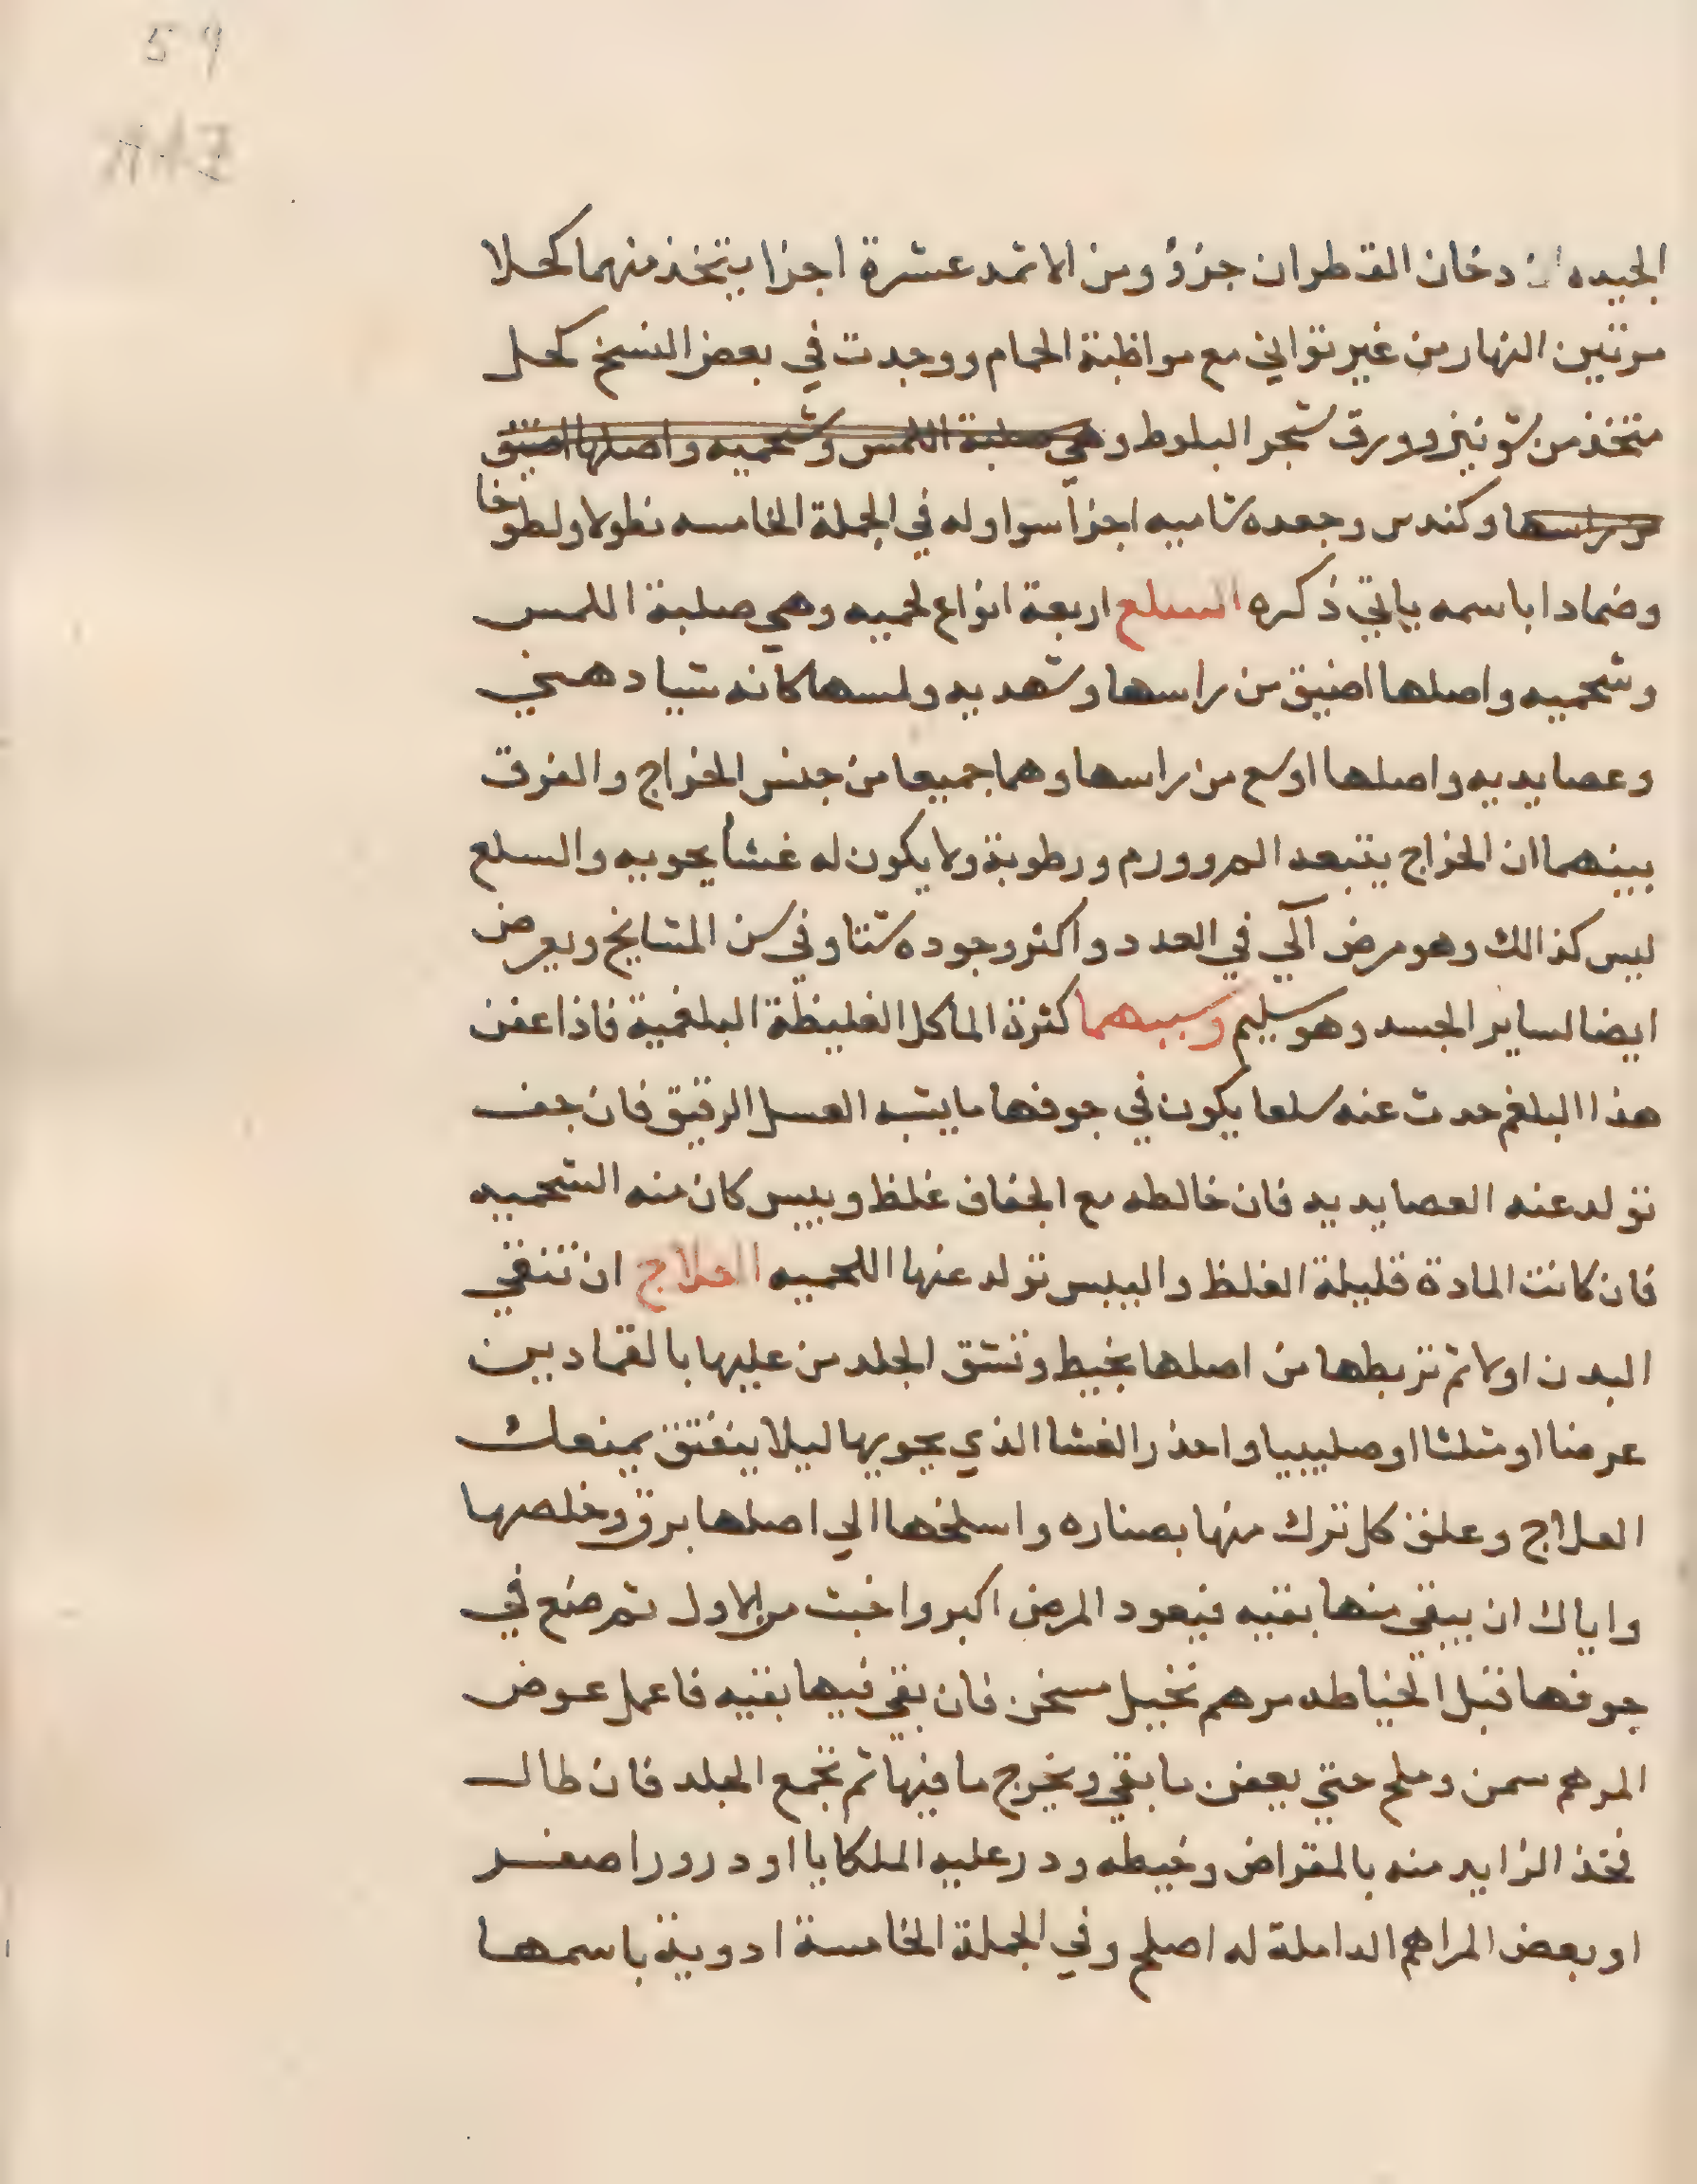 59
الجيده ان دخان القطران جزؤ ومن الاثمد عشرة اجزا يتخذ منهما كحلا
مرتين النهار من غير تواني مع مواظبة الحمام ووجدت في بعض النسخ كحل
متخذ من شونيز وورق شجر البلوط وهي صلبة اللمس وشحميه واصلها اضيق
من راسها وكندس وجعده شاميه اجزآ سوا وله في الجملة الخامسه نطولا ولطوخا
وضمادا باسمه ياتي ذكره السلع اربعة انواع لحميه وهي صلبة اللمس
وشحميه واصلها اضيق من راسها وشهديه ولمسها كانه شيا دهني
وعصايديه واصلها اوسع من راسها وهما جميعا من جنس الخراج والفرق
بينهما ان الخراج يتبعه الم وورم ورطوبة ولا يكون له غشأ يحويه والسلع
ليس كذالك وهو مرض آلي في العدد واكثر وجوده شتا وفي سن المشايخ ويعرض
ايضا لساير الجسد وهو سليم وسببهما كثرة الماكل الغليظة البلغمية فاذا عفن
هذا البلغم حدث عنه سلعا يكون في جوفها ما يشبه العسل الرقيق فان جف
تولد عنه العصايديه فان خالطه مع الجفاف غلظ ويبس كان منه الشحميه
فان كانت المادة قليلة الغلظ واليبس تولد عنها اللحميه العلاج ان تنقي
البدن اولا ثم تربطها من اصلها بخيط وتشق الجلد من عليها بالقمادين
عرضا او مثلثا او صليبيا واحذر الغشا الذي يحويها ليلا ينفتق يمنعك
العلاج وعلق كل ترك منها بصناره واسلخها الي اصلها برق وخلصها
واياك ان يبقي منها بقيه فيعود المرض اكبر واخبث من الاول ثم ضع في
جوفها قبل الخياطه مرهم نخيل مسخن فان بقي فيها بقيه فاعمل عوض
المرهم سمن وملح حتي يعفن ما بقي ويخرج ما فيها ثم تجمع الجلد فان طال
فخذ الزايد منه بالمقراض وخيطه ودر عليه الملكايا او درورا صفر
او بعض المراهم الداملة له اصلح وفي الجملة الخامسة ادوية باسمها